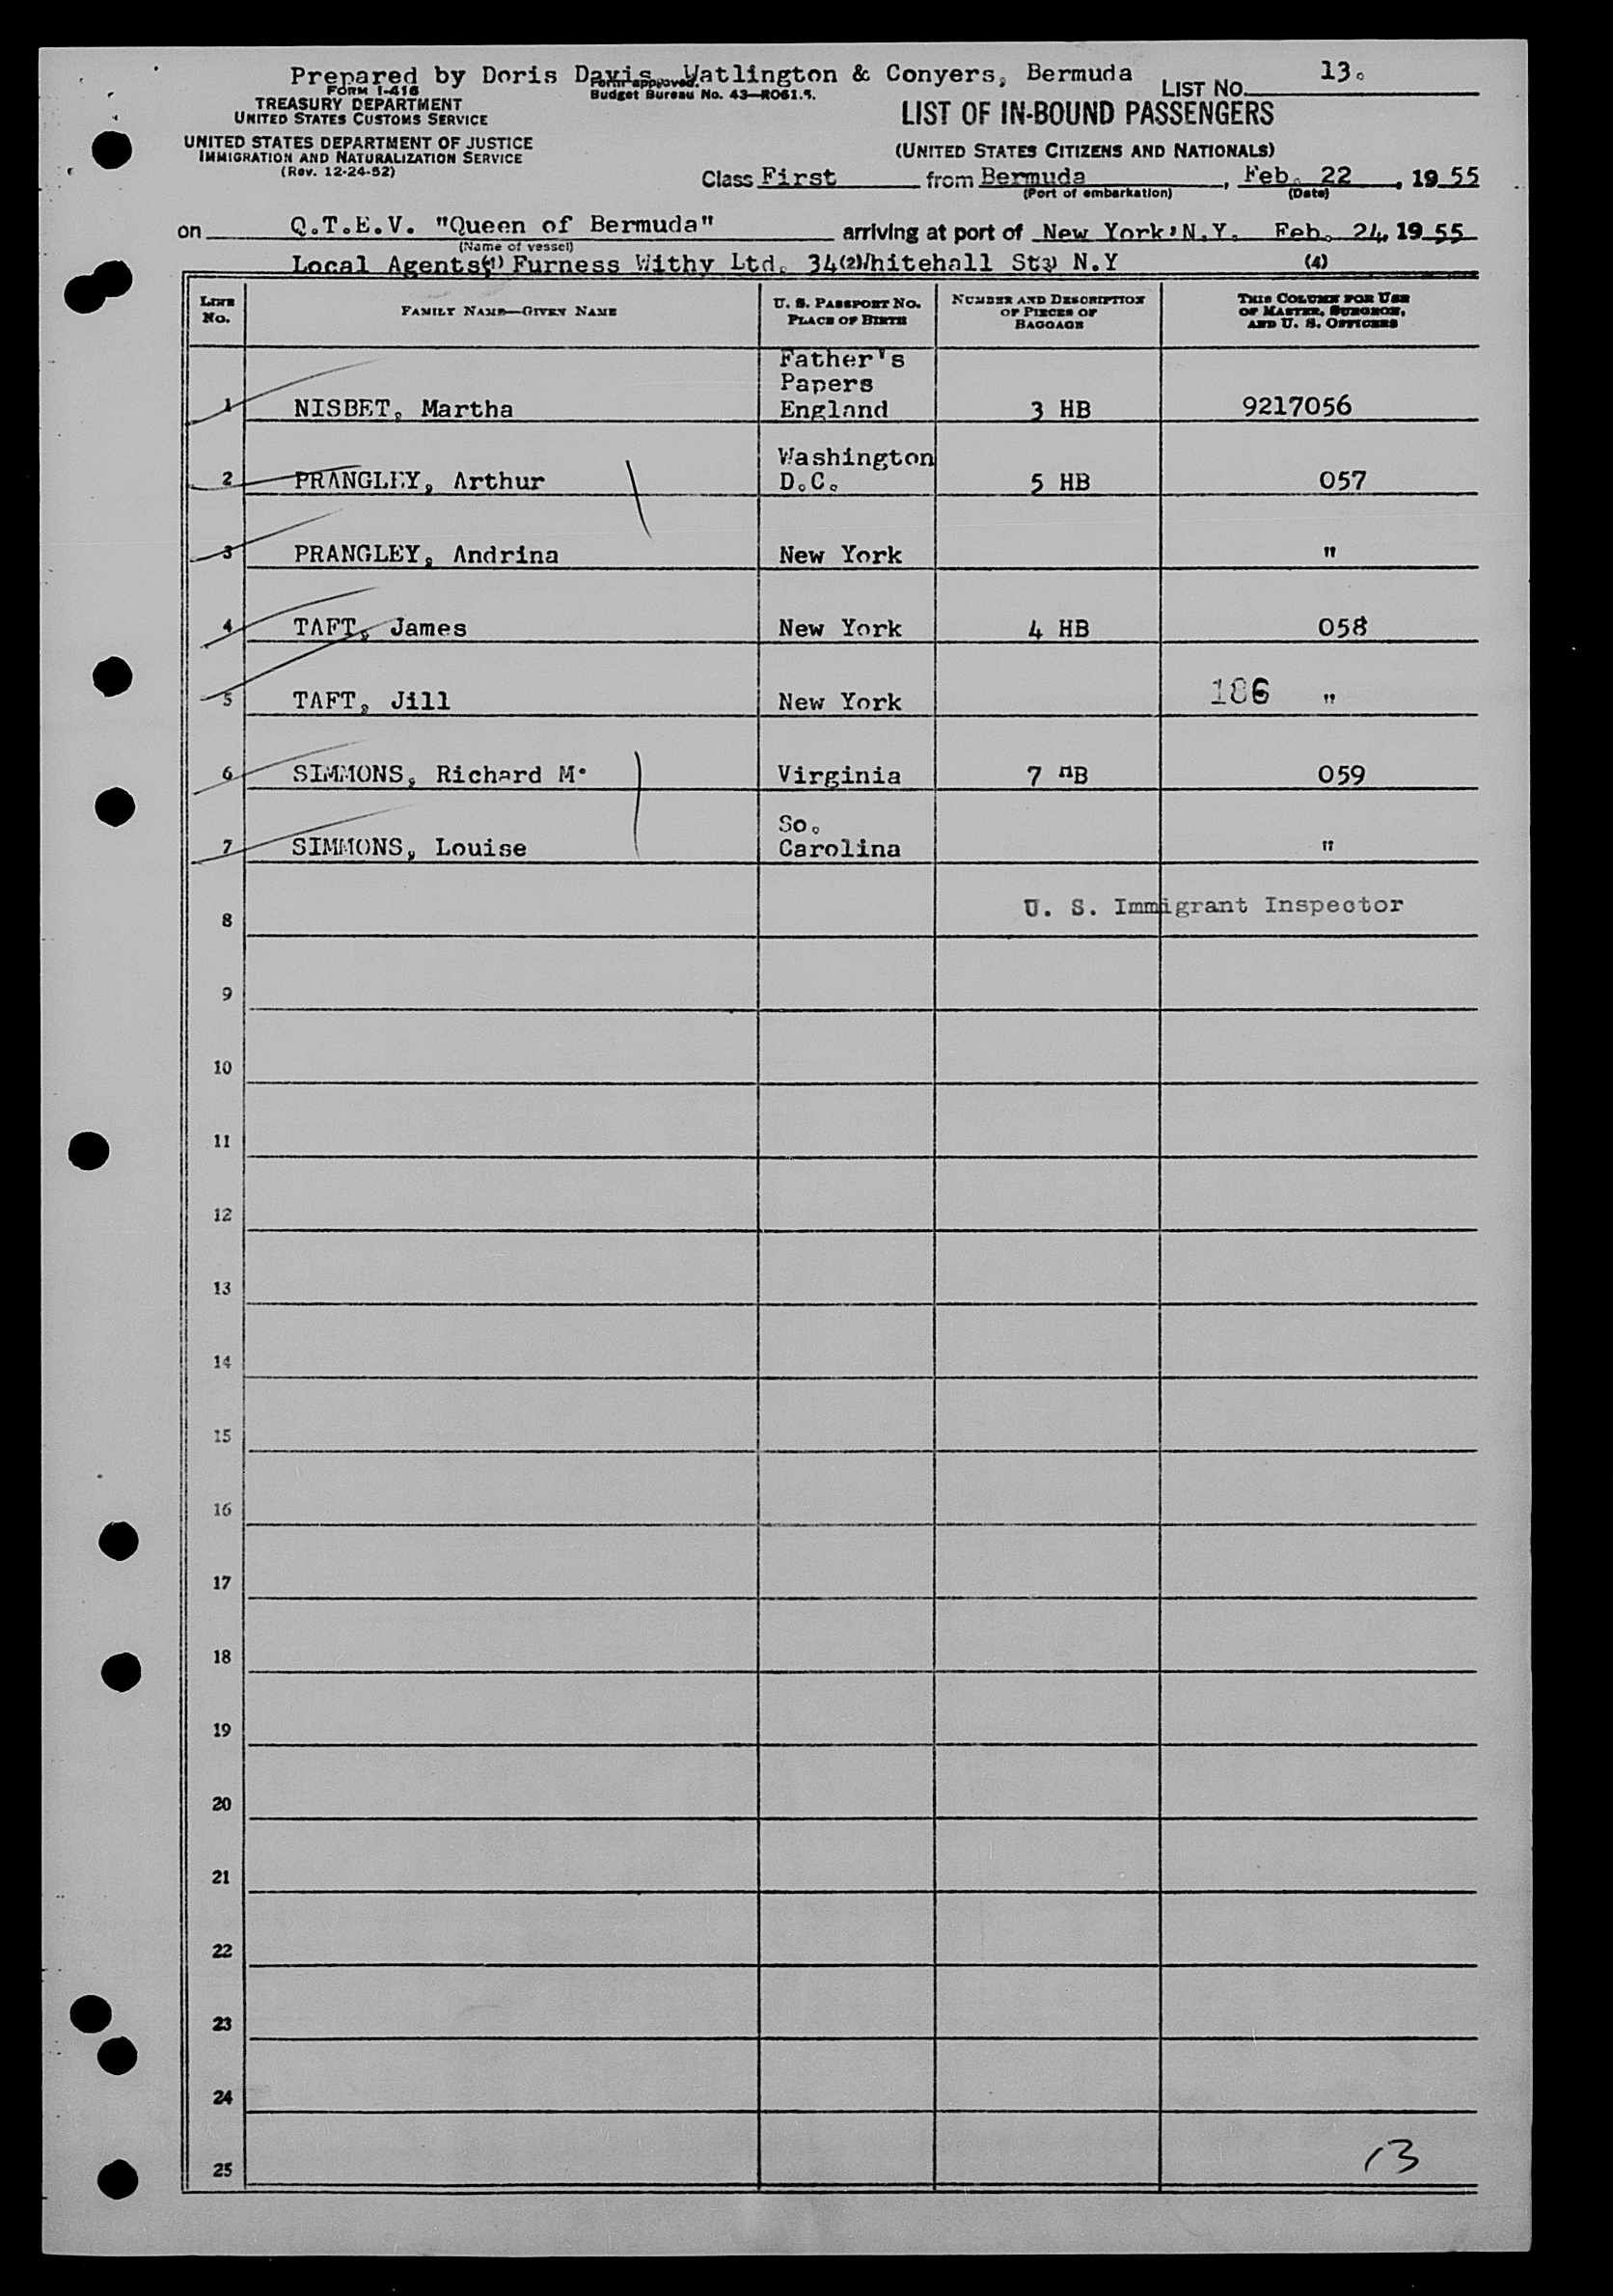 Prepared by Doris Davis, Watlington & Conyers, Bermuda
LIST NO. 13.
FORM I-416
TREASURY DEPARTMENT
UNITED STATES CUSTOMS SERVICE
Form approved.
Budget Bureau No. 43—R061.5.
LIST OF IN-BOUND PASSENGERS
UNITED STATES DEPARTMENT OF JUSTICE
IMMIGRATION AND NATURALIZATION SERVICE
(Rev. 12-24-52)
(UNITED STATES CITIZENS AND NATIONALS)
Class First from Bermuda, Feb. 22, 19 55
(Port of embarkation) (Date)
on Q.T.E.V. "Queen of Bermuda" arriving at port of New York, N.Y. Feb. 24, 19 55
(Name of vessel)
Local Agents Furness Withy Ltd. 34 Whitehall St. N.Y
(1) (2) (3) (4)
LINE No. FAMILY NAME—GIVEN NAME U. S. PASSPORT NO. PLACE OF BIRTH NUMBER AND DESCRIPTION OF PIECES OF BAGGAGE THIS COLUMN FOR USE OF MASTER, SURGEON, AND U. S. OFFICERS
Father's
Papers
1 NISBET, Martha England 3 HB 9217056
Washington
2 PRANGLEY, Arthur D.C. 5 HB 057
3 PRANGLEY, Andrina New York "
4 TAFT, James New York 4 HB 058
5 TAFT, Jill New York 186 "
6 SIMMONS, Richard M. Virginia 7 HB 059
So.
7 SIMMONS, Louise Carolina "
U. S. Immigrant Inspector
8
9
10
11
12
13
14
15
16
17
18
19
20
21
22
23
24
25
13